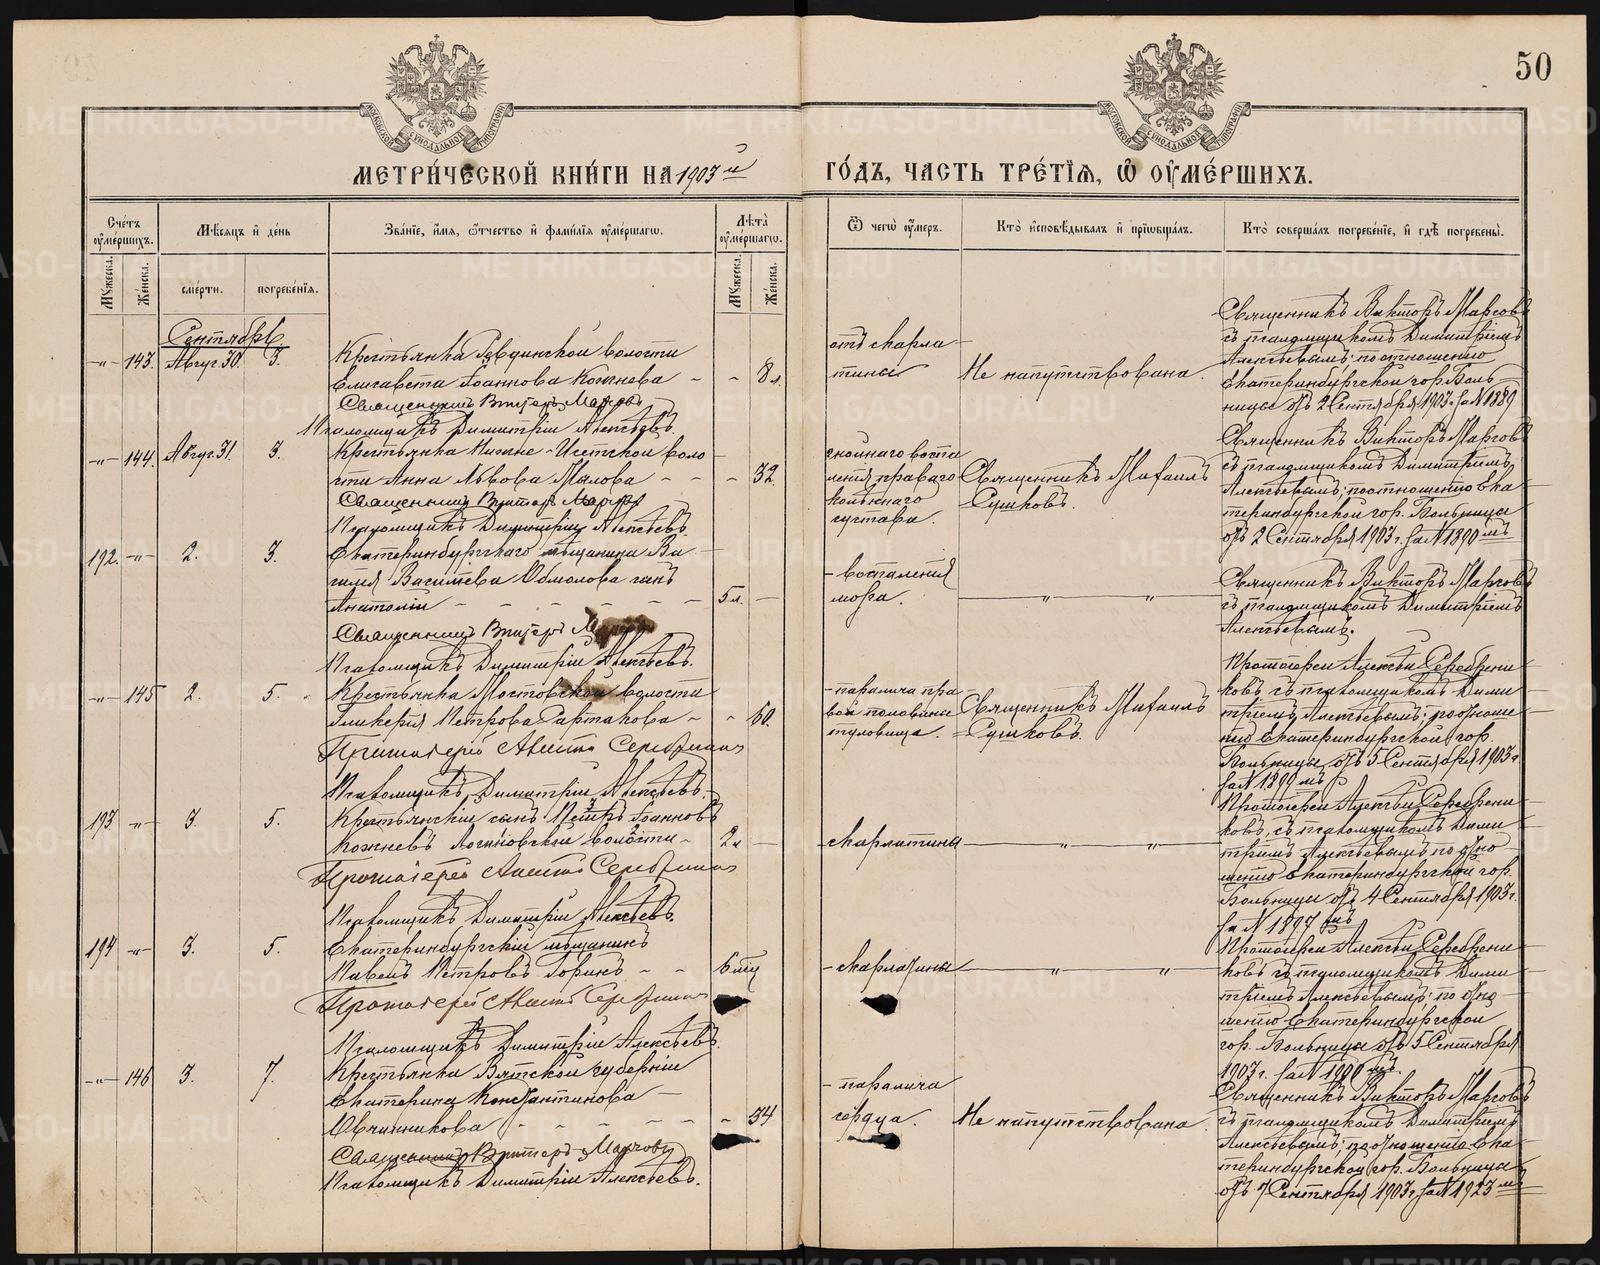 50
МОСКОВСКОЙ СѴНОДАЛЬНОЙ ТИПОГРАФІИ
МОСКОВСКОЙ СѴНОДАЛЬНОЙ ТИПОГРАФІИ
МЕТРИ́ЧЕСКОЙ КНИ́ГИ НА 1903й
ГО́ДЪ, ЧАСТЬ ТРЕ́ТЇѦ, Ѿ ОУМЕ́РШИХЪ.
Сче́тъ оумершихъ.
Мꙋжеска.
Же́нска.
Мѣ́сѧцъ и де́нь
сме́рти.
погребе́нїѧ.
Зва́нїе, и́мѧ, ѻ҆́тчество и фами́лїѧ оуме́ршагѡ.
Лѣта̀ оуме́ршагѡ.
Мꙋжеска.
Же́нска.
Ѿ чегѡ̀ оу́меръ.
Кто̀ и҆сповѣ́дывалъ и҆ прїѡбща́лъ.
Кто̀ соверша́лъ погребе́нїе, и҆ гдѣ̀ погребены̀.
Сентябрь
-"- 143. Август. 30. 3.
Крестьянка Ревдинской волости
Елисавета Іоаннова Кожнева - - 8 л.
Священникъ Викторъ
Псаломщикъ Димитрій Алексѣевъ.
отъ скарла
тины
Не напутствована.
Священникъ Викторъ
съ псаломщикомъ Димитріемъ
Алексѣевымъ; по отношенію
Екатеринбургской гор. Боль
ницы отъ 2 Сентября 1903 г. за N 1889
-"- 144. Август. 31. 3.
Крестьянка Нижне-Исетской воло
сти Анна Львова Малова - - - 32.
Священникъ Викторъ
Псаломщикъ Димитрій Алексѣевъ.
гнойнаго воспа
ленія праваго
колѣннаго
сустава.
Священникъ Михаилъ
Сушковъ.
Священникъ Викторъ
съ псаломщикомъ Димитріемъ
Алексѣевымъ; по отношенію Ека
теринбургской гор. Больницы
отъ 2 Сентября 1903 г. за N 1890 мъ
192. -"- 2. 3.
Екатеринбургскаго мѣщанина Ва
силія Васильева Обмолова сынъ
Анатолій - - - - - - 5 л. -
Священникъ Викторъ
Псаломщикъ Димитрій Алексѣевъ.
- воспаленія
мозга.
" "
Священникъ Викторъ
съ псаломщикомъ Димитріемъ
Алексѣевымъ.
-"- 145 2. 5.
Крестьянка Мостовской волости
Гликерія Петрова - - 60.
Протоіерей Алексій
Псаломщикъ Димитрій Алексѣевъ.
- паралича пра
вой половины
туловища.
Священникъ Михаилъ
Сушковъ.
Протоіерей Алексѣй Серебрени
ковъ съ псаломщикомъ Дими
тріемъ Алексѣевымъ; по отноше
нію Екатеринбургской гор.
Больницы отъ 5 Сентября 1903 г.
193 -"- 3 5.
Крестьянскій сынъ Петръ Іоанновъ
Кожневъ волости - 2 л -
Протоіерей Алексій
Псаломщикъ Димитрій Алексѣевъ.
- скарлатины
" "
Протоіерей Алексѣй Серебрени
ковъ, съ псаломщикомъ Дими
тріемъ Алексѣевымъ по отно
шенію Екатеринбургской гор.
Больницы отъ 4 Сентября 1903 г.
за N 1897 мъ
194 -"- 3. 5.
Екатеринбургскій мѣщанинъ
Павелъ Петровъ - - 6 мѣц
Протоіерей Алексій
Псаломщикъ Димитрій Алексѣевъ.
- скарлатины
" "
Протоіерей Алексѣй Серебрени
ковъ съ псаломщикомъ Дими
тріемъ Алексѣевымъ; по отно
шенію Екатеринбургской
гор. Больницы отъ 5 Сентября
1903 г. за N 1900 мъ
-"- 146 3. 7.
Крестьянка Вятской губерніи
Екатерина Константинова -
Овчинникова - - - - - 54
Священникъ Викторъ
Псаломщикъ Димитрій Алексѣевъ.
- паралича
сердца.
Не напутствована
Священникъ Викторъ
съ псаломщикомъ Димитріемъ
Алексѣевымъ; по отношенію Ека
теринбургской гор. Больницы
отъ 7 Сентября 1903 г. за N 1923 мъ
METRIKI.GASO-URAL.RU